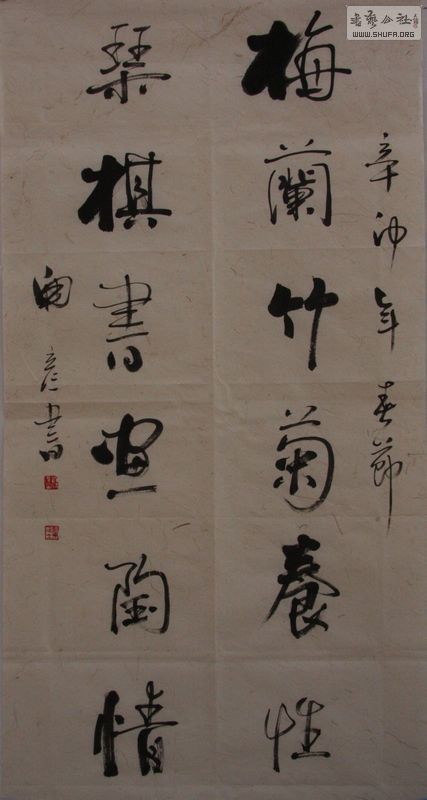 書藝公社
WWW.SHUFA.ORG
辛卯年春節
梅蘭竹菊養性
琴棋書畫陶情
彦書